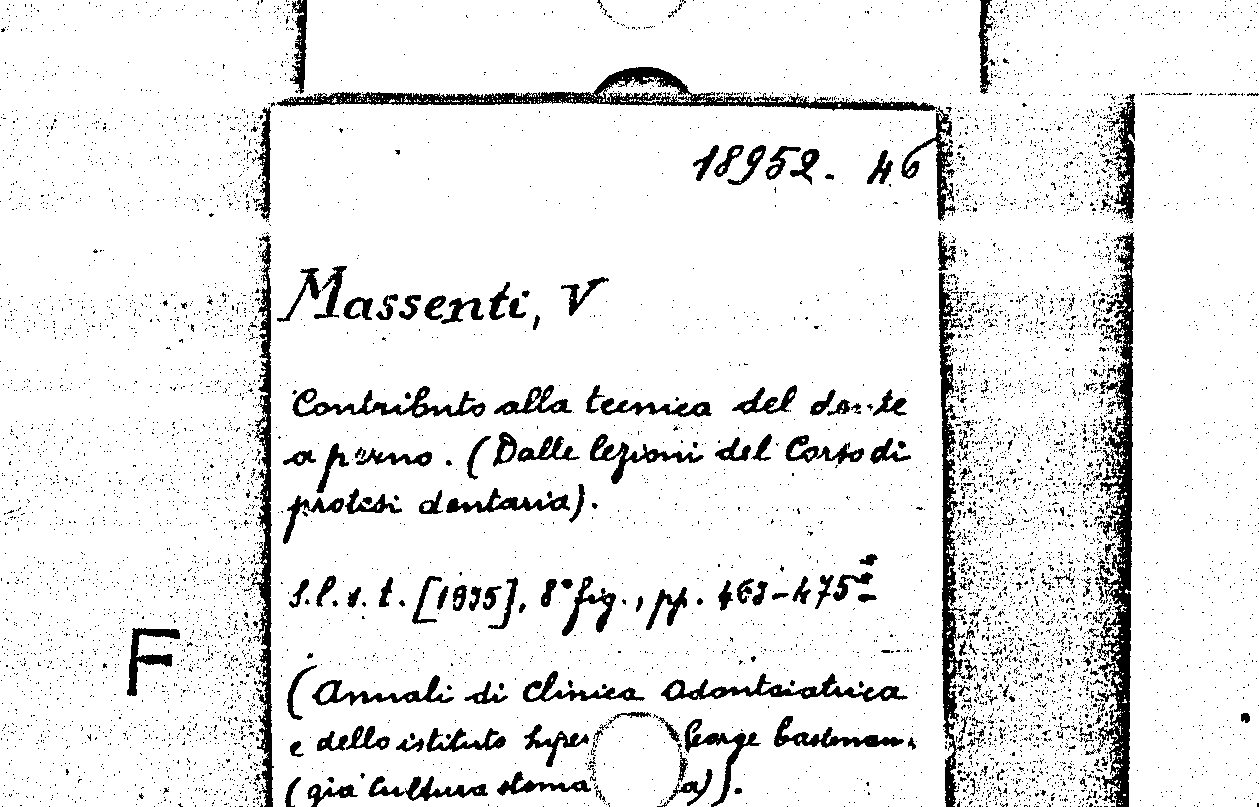 18952. 46
Massenti, V
Contributo alla tecnica del dente
a perno. (Dalle lezioni del Corso di
protesi dentaria).
S.l.s.t. [1935], 8° fig., pp. 463-475
F
(Annali di Clinica Odontoiatrica
e dello istituto Super George Eastman.
(già Cultura stoma a)).